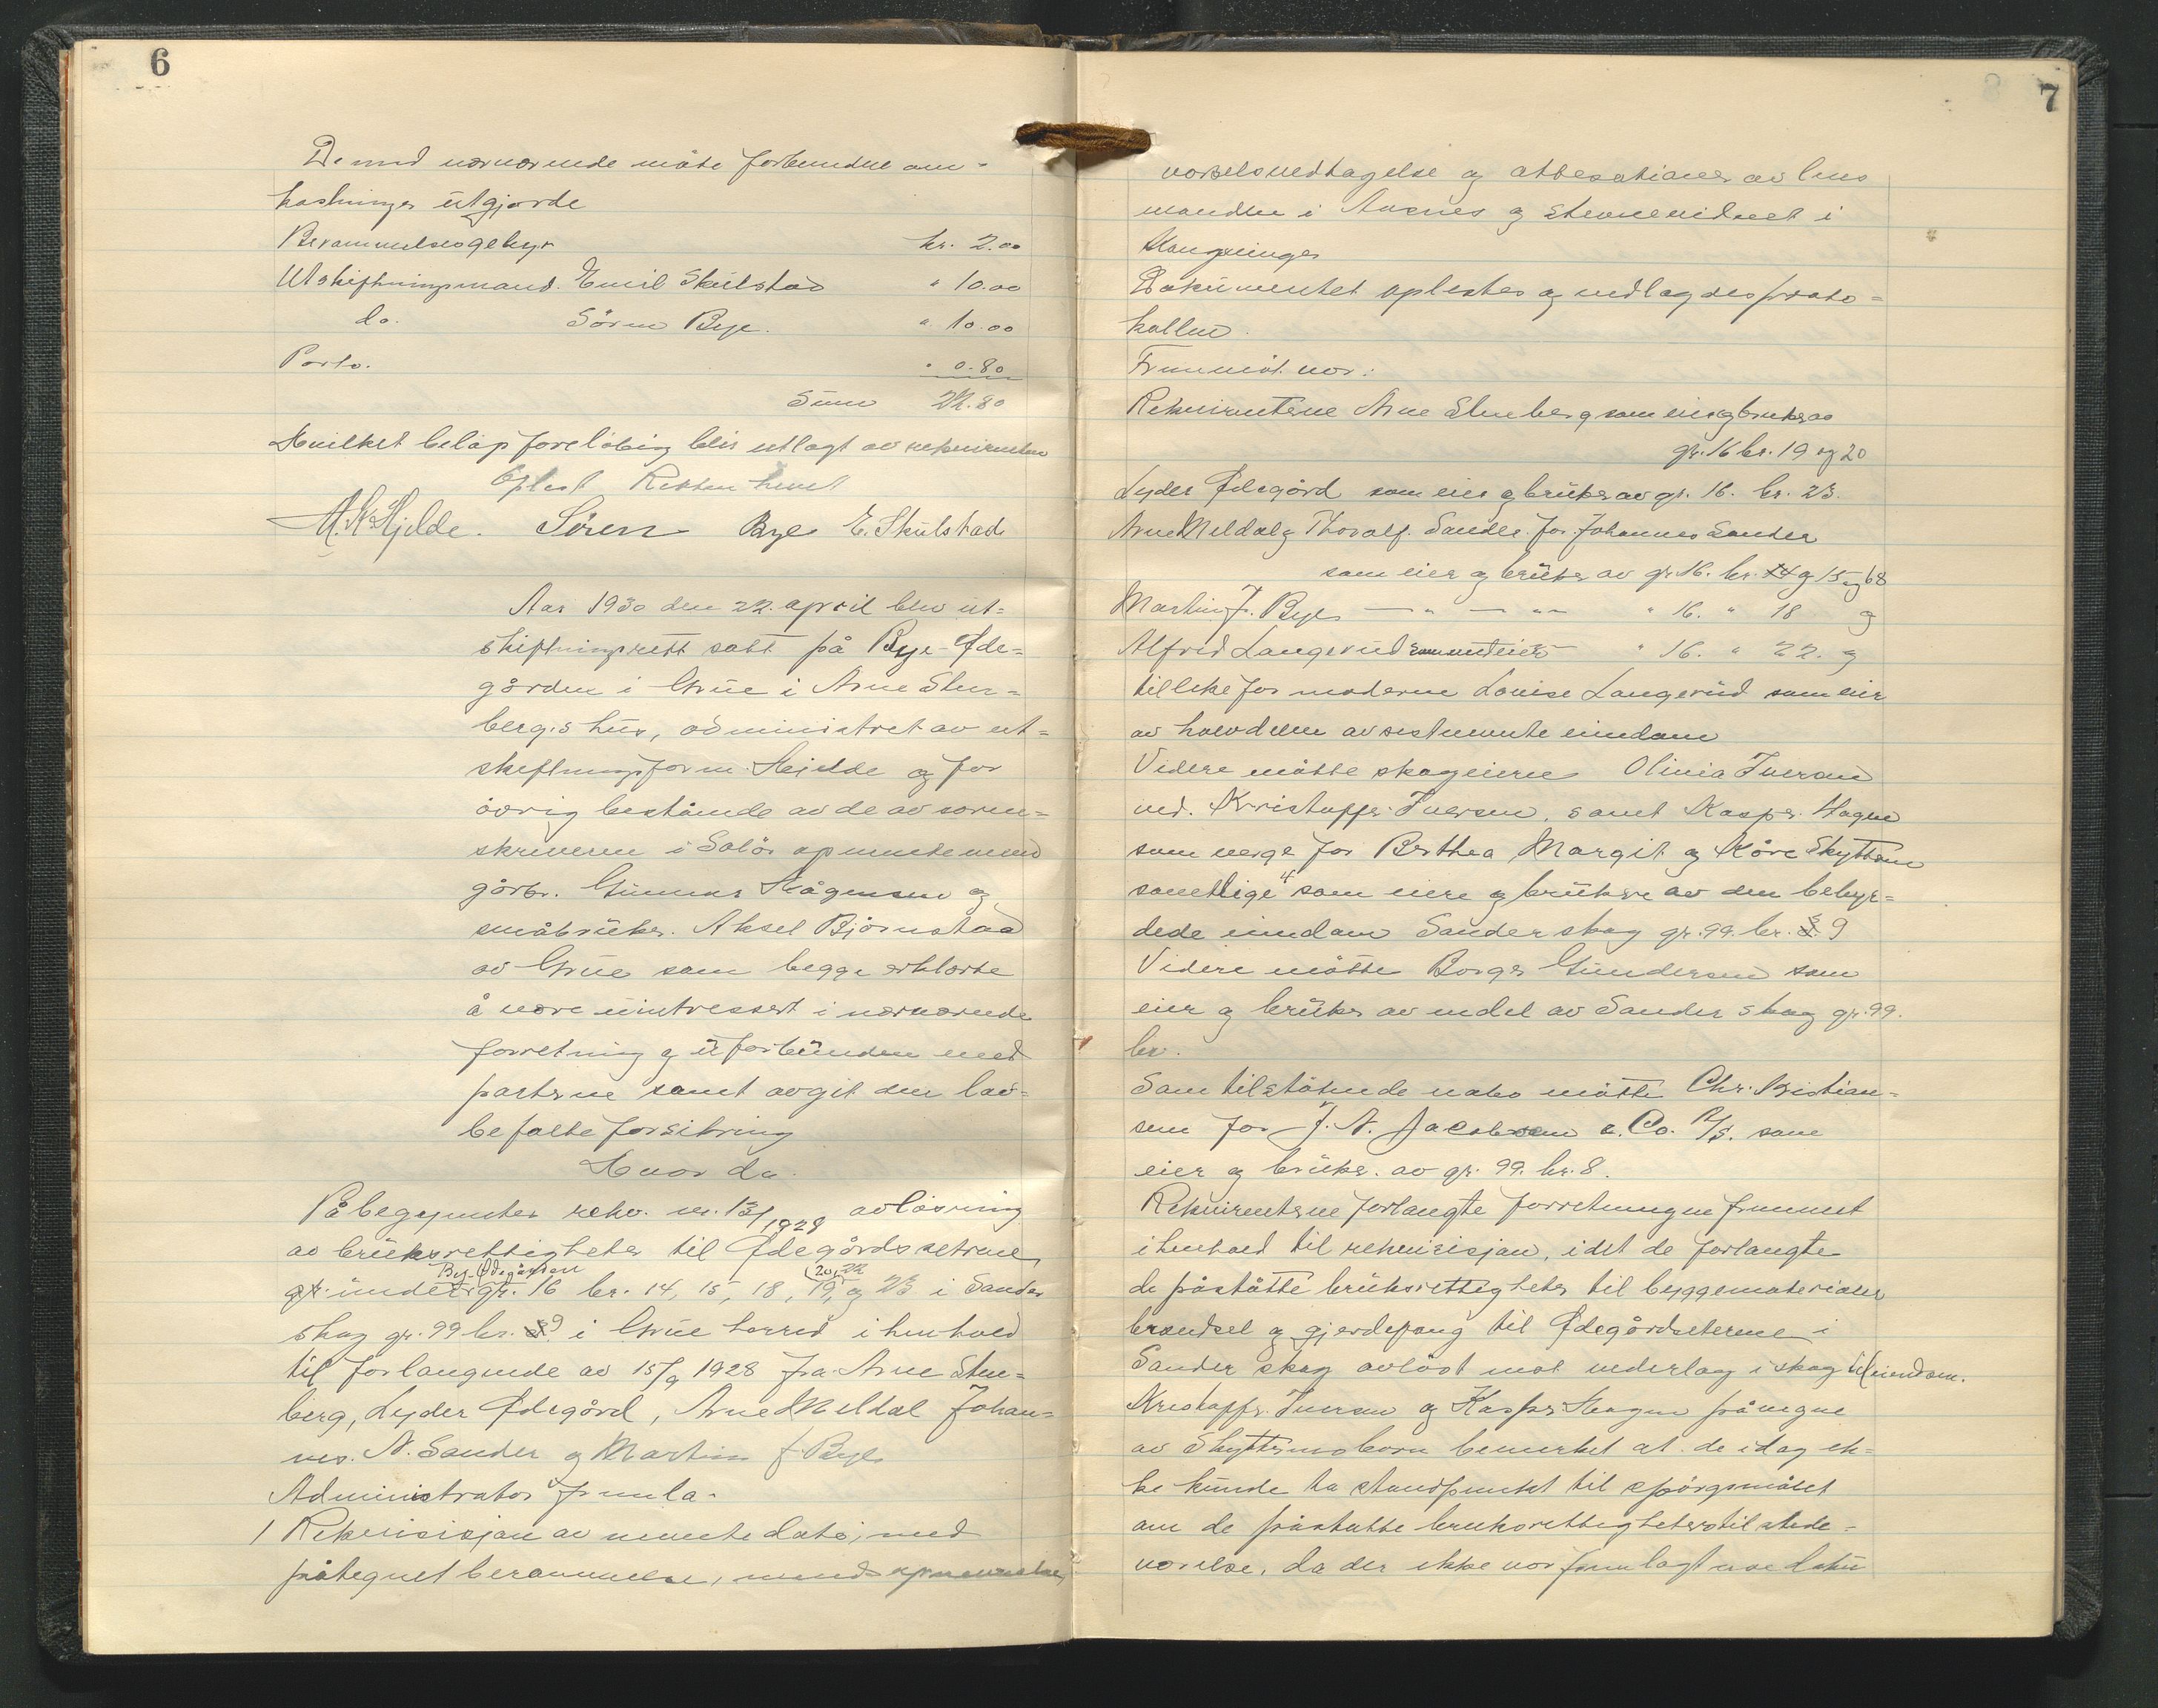 6
De med nærværende møte forbundne om-
kostninger utgjorde
Berammelsesgebyr kr. 2.00
Utskiftningsmand. Emil Skulstad " 10.00
do. Sören Bye. " 10.00
Porto. " 0.80
Sum 22.80
Hvilket beløp foreløbig blir utlagt av rekvirenten
Oplest Retten hevet
A. K. Hjelde. Sören Bye E. Skulstad
Aar 1930 den 22. april blev ut=
skiftningsrett satt på Bye-Øde=
gården i Grue i Arne Sten=
berg.s hus, administret av ut=
skiftningsform. Hjelde og for
övrig bestående av de av soren=
skriveren i Solör opnevnte menn
gårbr. Gunnar Hågensen og
småbruker. Aksel Björnstad
av Grue som begge erklærte
å være uintressert i nærværende
forretning og uforbunden med
parterne samt avgit den lov=
befalte forsikring
Hvor da.
Påbegyntes rekv. nr. 13/1928 avlösning
av bruksrettigheter til Ødegårdssetrene
Bye-Ødegården 20, 22
gr. under gr. 16 br. 14, 15, 18, 19, og 23 i Sander
skog gr. 99 br. 8 9 i Grue herred i henhold
til forlangende av 15/9 1928 fra Arne Sten=
berg, Lyder Ødegård, Arne Meldal Johan=
nes. N. Sander og Martin J. Bye
Administrator fremla.
1 Rekvisisjon av nevnte dato, med
påtegnet berammelse, menns opnevnelse,
7
varselsvedtagelse og attestationer av lens
manden i Aasnes og stevnevidnet i
Kongsvinger
Dokumentet oplestes og vedlagdes proto=
kollen.
Fremmöt var:
Rekvirentene Arne Stenberg som eier og bruker av
gr. 16 br. 19 og 20
Lyder Ødegård som eier og bruker av gr. 16. br. 23.
Arne Meldal og Thoralf. Sander. for Johannes Sander
som eier og bruker av gr. 16. br. 14 og 15 og 68
Martin J. Bye — " — " — " 16. " 18 og
Alfred Langerud som medeier " 16. " 22. og
tillike for moderen Louise Langerud som eier
av halvdelen av sistnevnte eiendom
Videre møtte skogeierne Olivia Iversen
ved. Kristoffer Iversen, samt Kasper. Hagen
som verge for Berthea Margit og Kåre Skyttern
samtlige som eiere og brukere av den behyr=
dede eiendom Sander skog gr. 99. br. 8. 9
Videre mötte Borger Gundersen som
eier og bruker av endel av Sander skog gr. 99.
br.
Som tilstötende nabo mötte Chr. Kristian=
sen for J. N. Jacobsen & Co. A/S. som
eier og bruker. av gr. 99. br. 8.
Rekvirenterne forlangte forretningen fremmet
i henhold til rekvisisjon, idet de forlangte
de påståtte bruksrettigheter til byggematerialer
brendsel og gjerdefang til Ødegårdseterene i
Sander skog avlöst mot vederlag i skog til eiendom.
Kristoffer. Iversen og Kasper Hagen på vegne
av Skytterns born bemerket at de idag ik=
ke kunde ta standpunkt til spörgsmålet
om de påståtte bruksrettigheters tilstede=
værelse, da der ikke var fremlagt noe doku